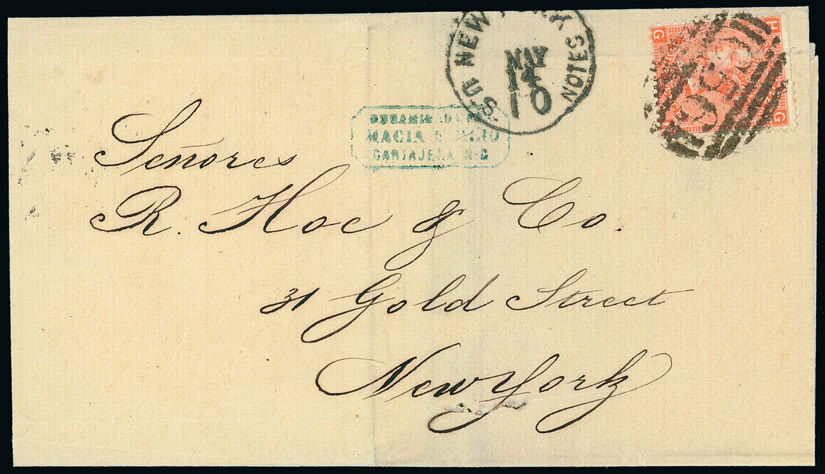 U.S. NEW YORK NOTES
MAY
14
10
H
G
G
MACIA
CARTAJENA
Señores
R. Hoe & Co.
31 Gold Street
New York